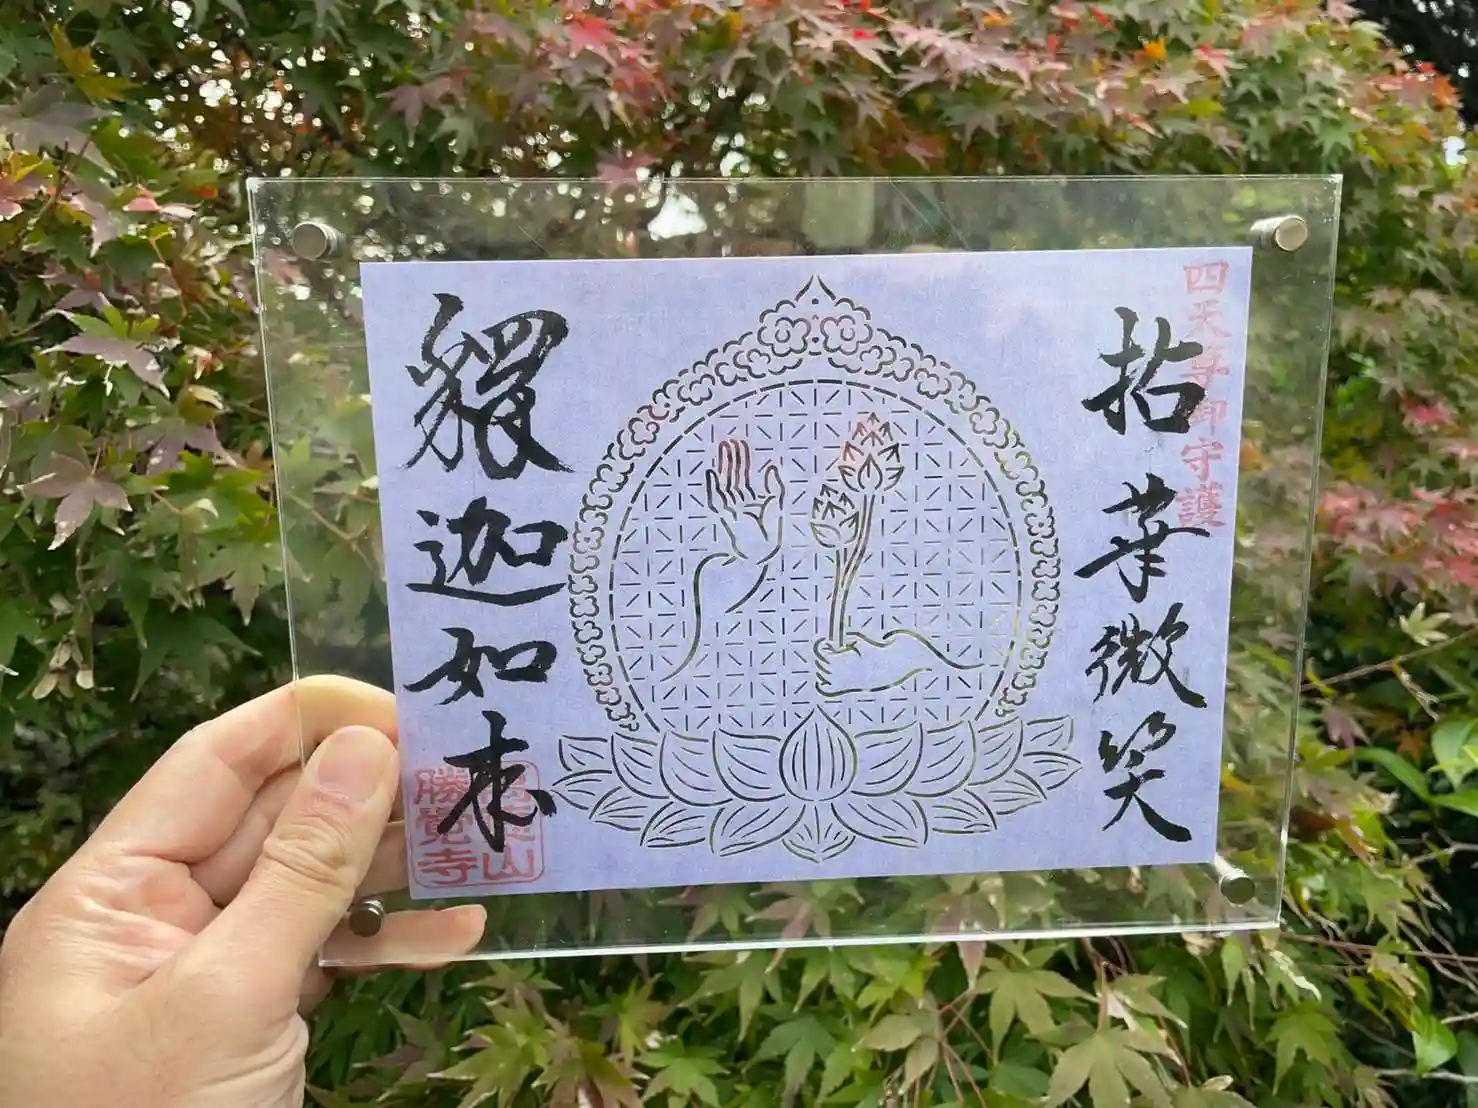 四天王御守護
拈華微笑
釋迦如来
山
勝覺寺